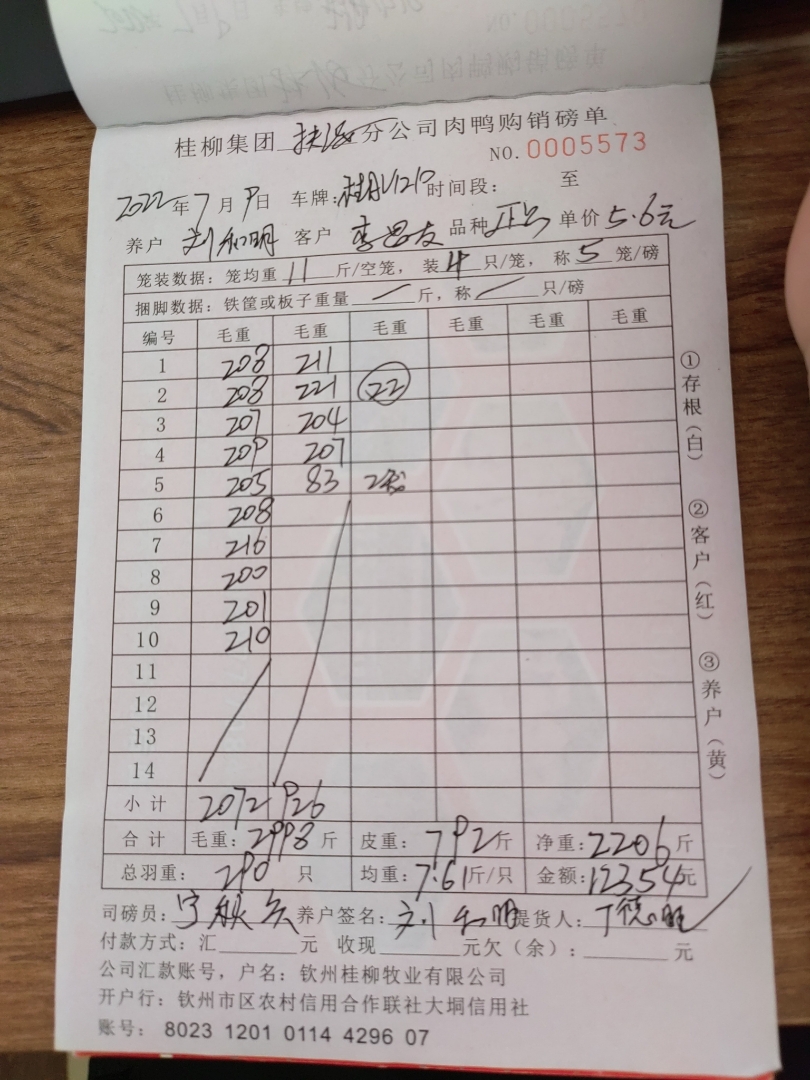 桂柳集团 扶绥 分公司肉鸭购销磅单
NO. 0005573
2022年7月9日 车牌: 时间段: 至
养户 刘和明 客户 李昌友 品种 单价 5.6元
笼装数据: 笼均重 11 斤/空笼, 装 4 只/笼, 称 5 笼/磅
捆脚数据: 铁筐或板子重量 — 斤, 称 — 只/磅
编号 毛重 毛重 毛重 毛重 毛重
1 208 211
2 208 221 22
3 207 204
4 209 207
5 205 83 2笼
6 208
7 216
8 200
9 201
10 210
11
12
13
14
小计 2072 926
合计 毛重: 2998 斤 皮重: 792斤 净重: 2206 斤
总羽重: 290 只 均重: 7.61斤/只 金额: 12354元
司磅员: 养户签名: 刘和明 提货人: 丁德旺
付款方式: 汇 元 收现 元欠(余): 元
公司汇款账号, 户名: 钦州桂柳牧业有限公司
开户行: 钦州市区农村信用合作联社大垌信用社
账号: 8023 1201 0114 4296 07
①存根(白)
②客户(红)
③养户(黄)